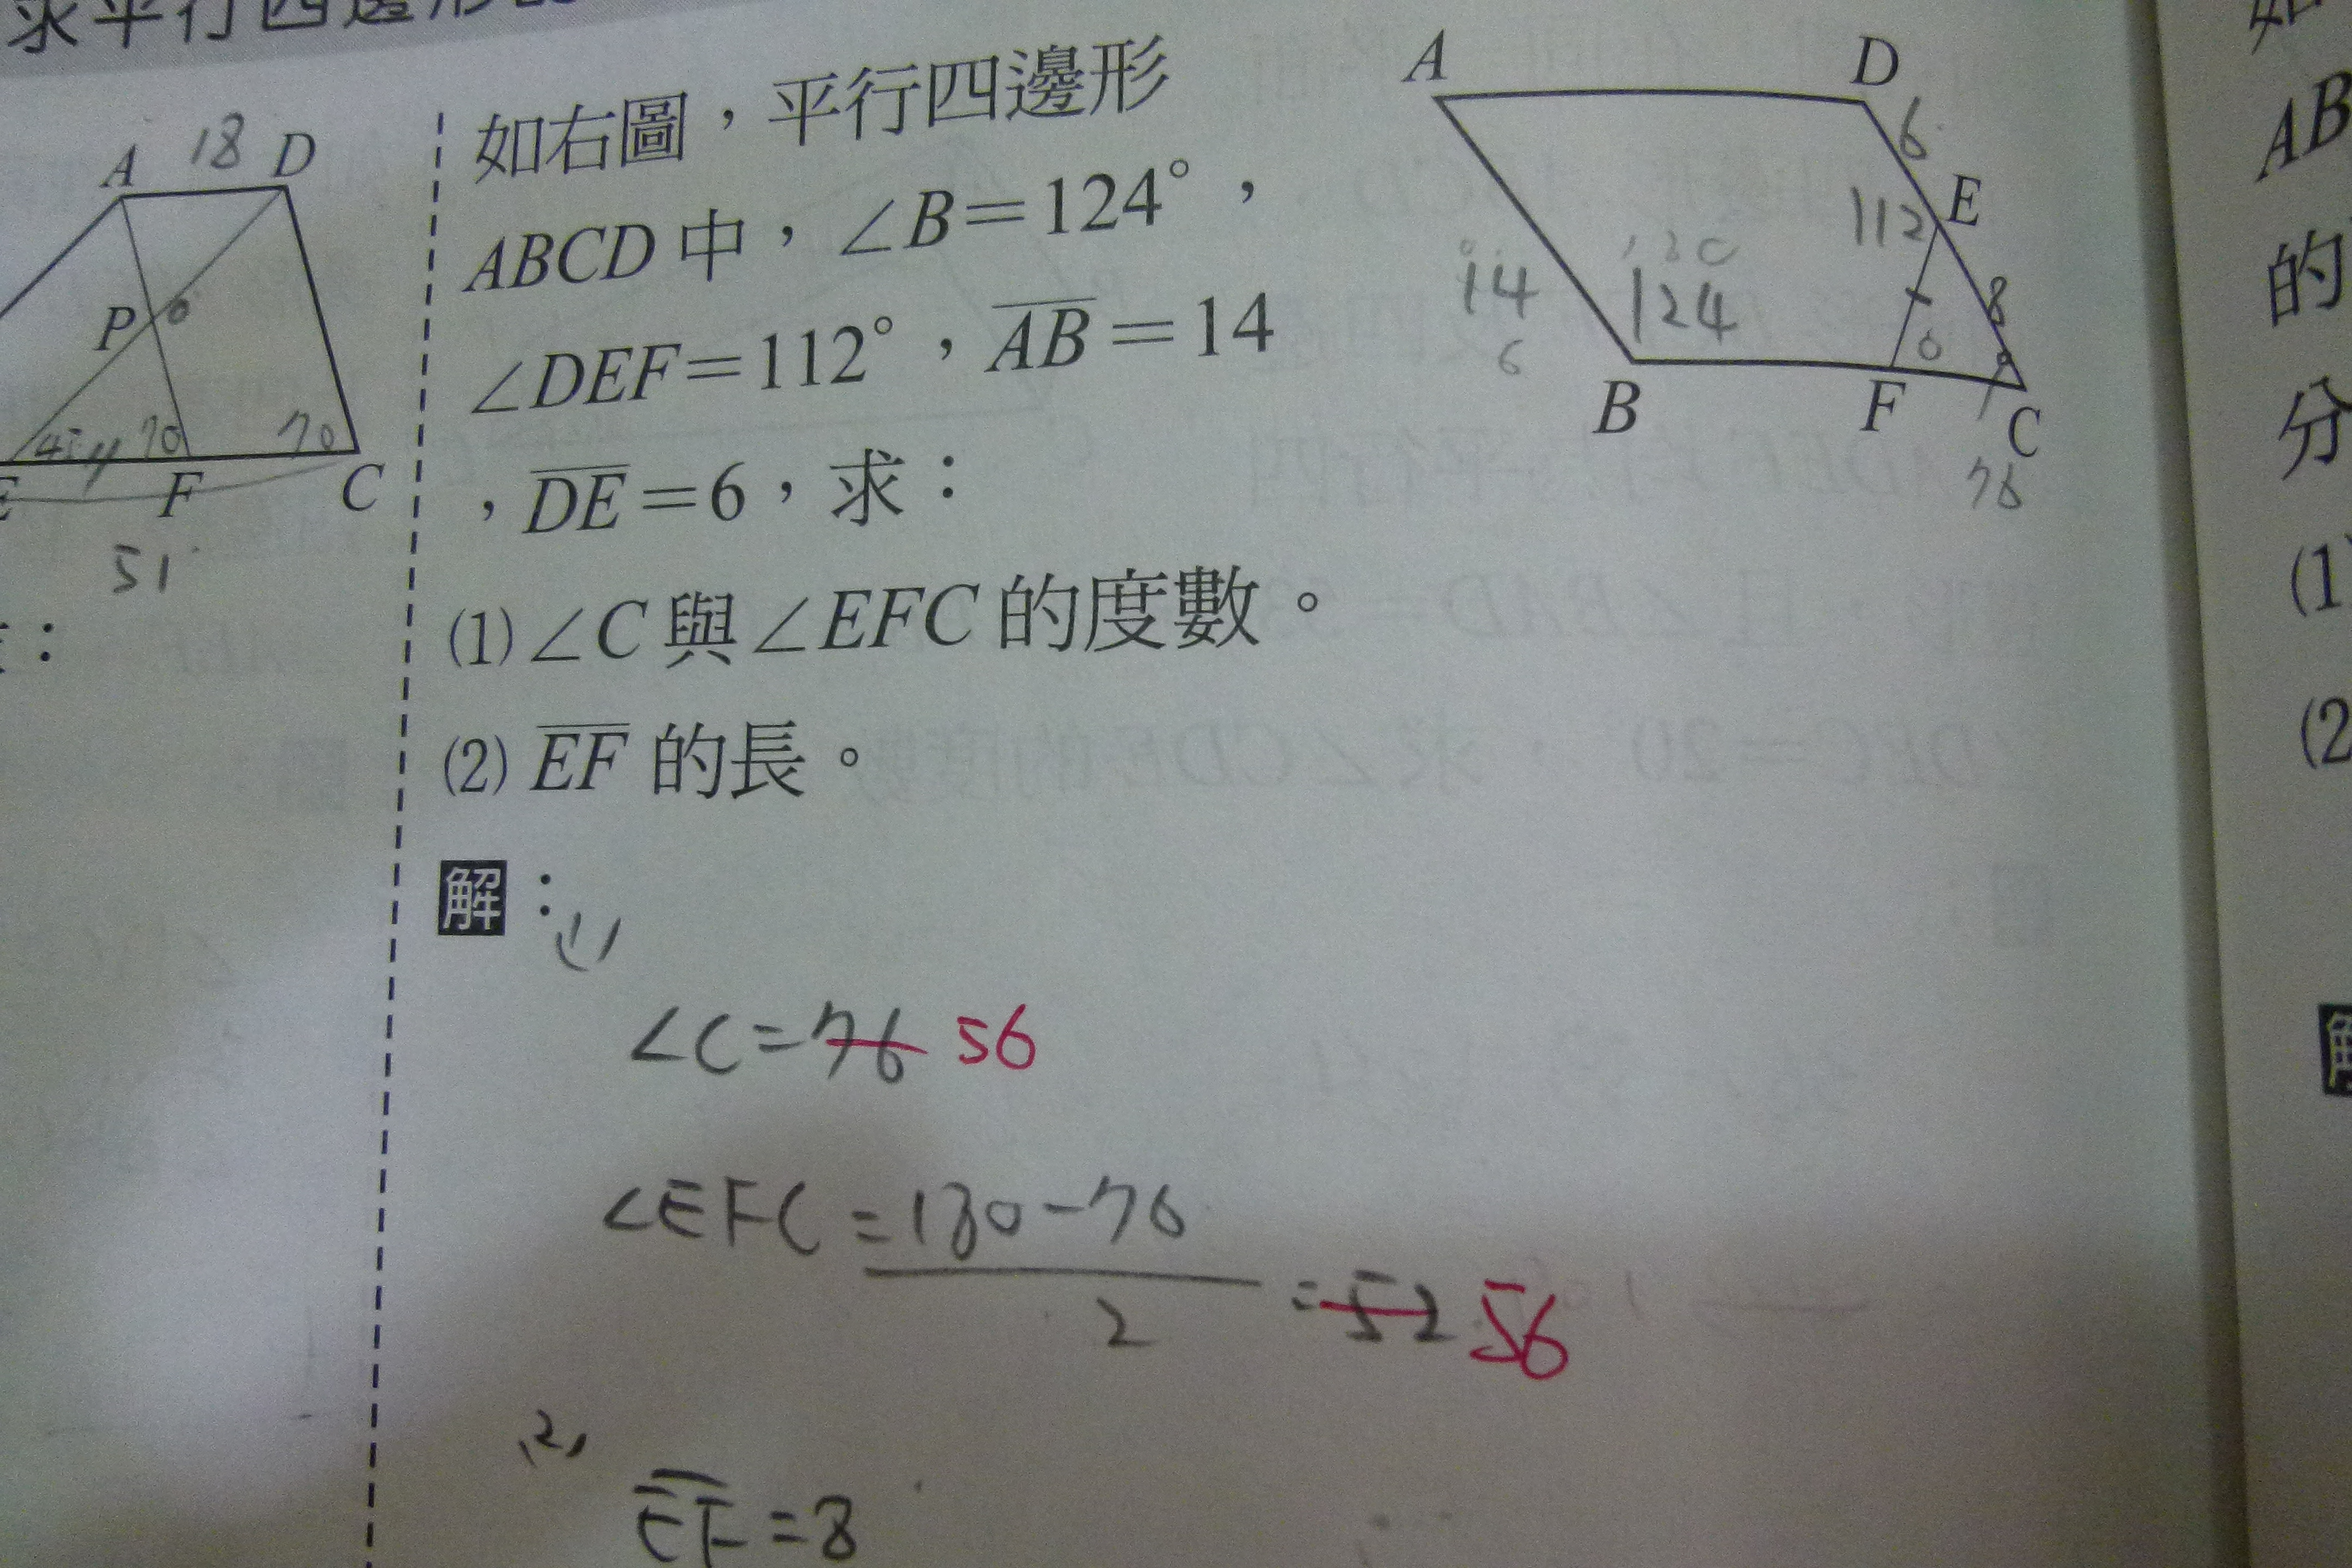 求平行四邊形
18
A D
P
45 70 70
F C
51
:
如右圖，平行四邊形
ABCD中，∠B＝124°，
∠DEF＝112°，AB＝14
，DE＝6，求：
(1)∠C與∠EFC的度數。
(2) EF 的長。
A D
6
E
112
14
124
8
6
B F C
76
解：(1)
∠C=76 56
∠EFC=180-76
2
=52 56
(2)
EF=8
如
AB
的
分
(1)
(2